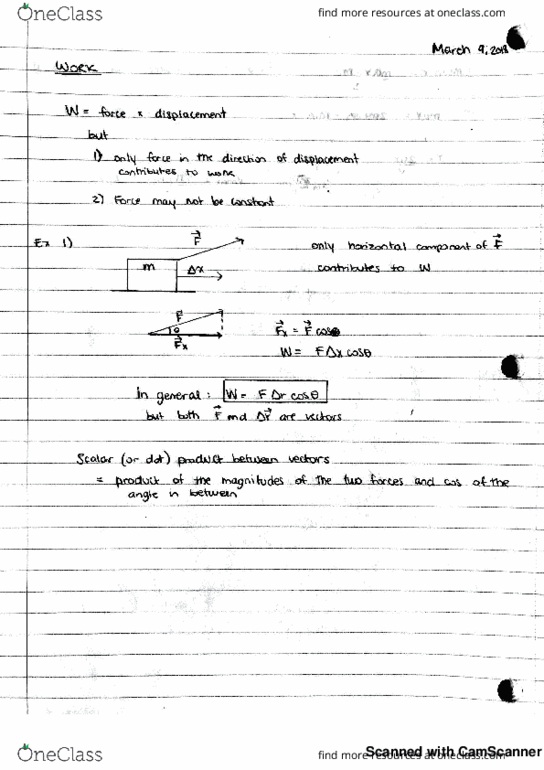 OneClass
find more resources at oneclass.com
March 9, 2018
WORK
W = force x displacement
but
1) only force in the direction of displacement
contributes to work
2) Force may not be constant
Ex 1)
F
m
Δx
only horizontal component of F
contributes to W
F
θ
Fx
Fx = F cosθ
W = FΔx cosθ
In general: W = F Δr cosθ
but both F and Δr are vectors
Scalar (or dot) product between vectors
= product of the magnitudes of the two forces and cos of the
angle in between
OneClass
find more resources at oneclass.com
Scanned with CamScanner